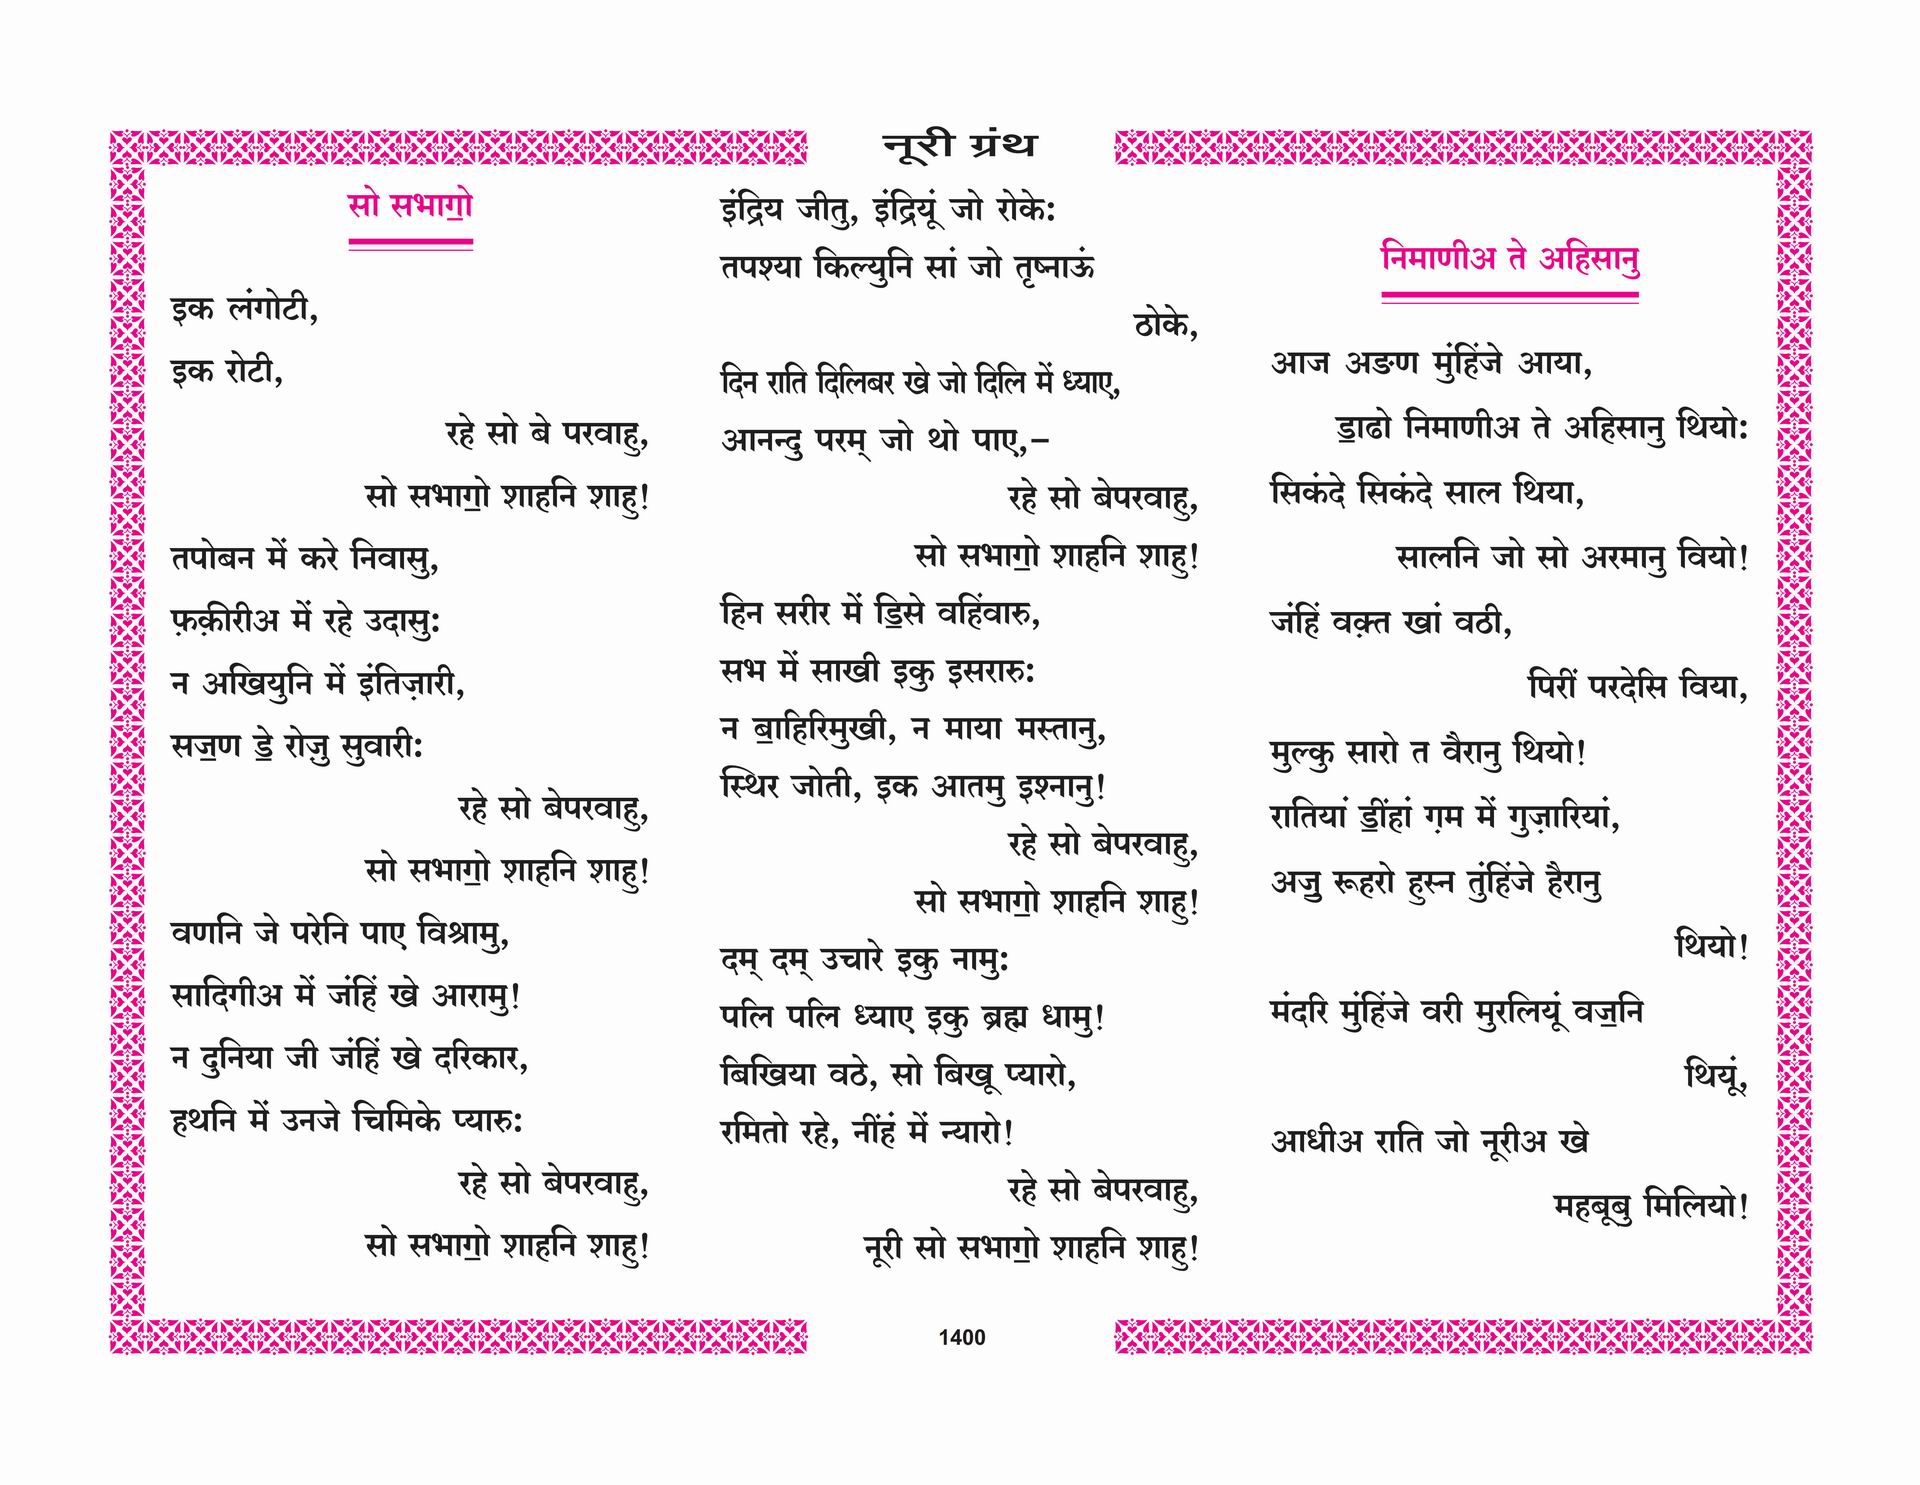 नूरी ग्रंथ
सो सभाॻो
इक लंगोटी,
इक रोटी,
रहे सो बे परवाहु,
सो सभाॻो शाहनि शाहु!
तपोबन में करे निवासु,
फ़क़ीरीअ में रहे उदासु:
न अखियुनि में इंतिज़ारी,
सॼण ॾे रोज़ु सुवारी:
रहे सो बेपरवाहु,
सो सभाॻो शाहनि शाहु!
वणनि जे परेनि पाए विश्रामु,
सादिगीअ में जंहिं खे आरामु!
न दुनिया जी जंहिं खे दरिकार,
हथनि में उनजे चिमिके प्यारु:
रहे सो बेपरवाहु,
सो सभाॻो शाहनि शाहु!
इंद्रिय जीतु, इंद्रियूं जो रोके:
तपश्या किल्युनि सां जो तृष्नाऊं
ठोके,
दिन राति दिलिबर खे जो दिलि में ध्याए,
आनन्दु परम् जो थो पाए,–
रहे सो बेपरवाहु,
सो सभाॻो शाहनि शाहु!
हिन सरीर में ॾिसे वहिंवारु,
सभ में साखी इकु इसरारु:
न ॿाहिरिमुखी, न माया मस्तानु,
स्थिर जोती, इक आतमु इश्नानु!
रहे सो बेपरवाहु,
सो सभाॻो शाहनि शाहु!
दम् दम् उचारे इकु नामु:
पलि पलि ध्याए इकु ब्रह्म धामु!
बिखिया वठे, सो बिखू प्यारो,
रमितो रहे, नींहं में न्यारो!
रहे सो बेपरवाहु,
नूरी सो सभाॻो शाहनि शाहु!
निमाणीअ ते अहिसानु
आज अङण मुंहिंजे आया,
ॾाढो निमाणीअ ते अहिसानु थियो:
सिकंदे सिकंदे साल थिया,
सालनि जो सो अरमानु वियो!
जंहिं वक़्त खां वठी,
पिरीं परदेसि विया,
मुल्कु सारो त वैरानु थियो!
रातियां ॾींहां ग़म में गुज़ारियां,
अॼु रूहरो हुस्न तुंहिंजे हैरानु
थियो!
मंदरि मुंहिंजे वरी मुरलियूं वॼनि
थियूं,
आधीअ राति जो नूरीअ खे
महबूबु मिलियो!
1400